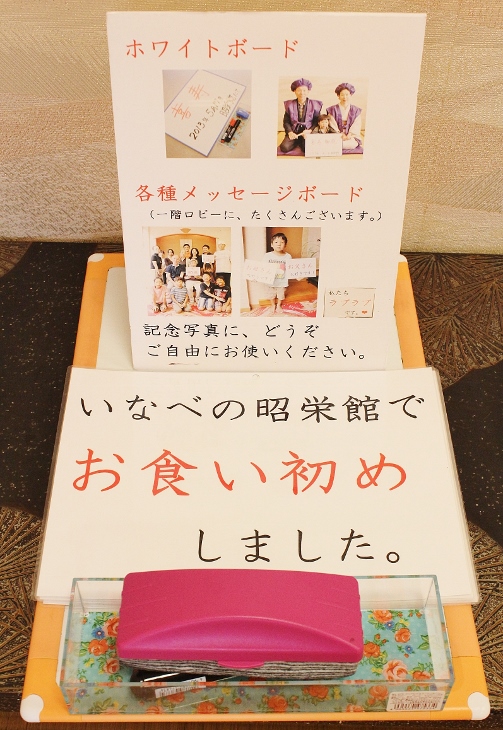 ホワイトボード
2013年
各種メッセージボード
(一階ロビーに、たくさんございます。)
私たち
ラブラブ
です。
記念写真に、どうぞ
ご自由にお使いください。
いなべの昭栄館で
お食い初め
しました。